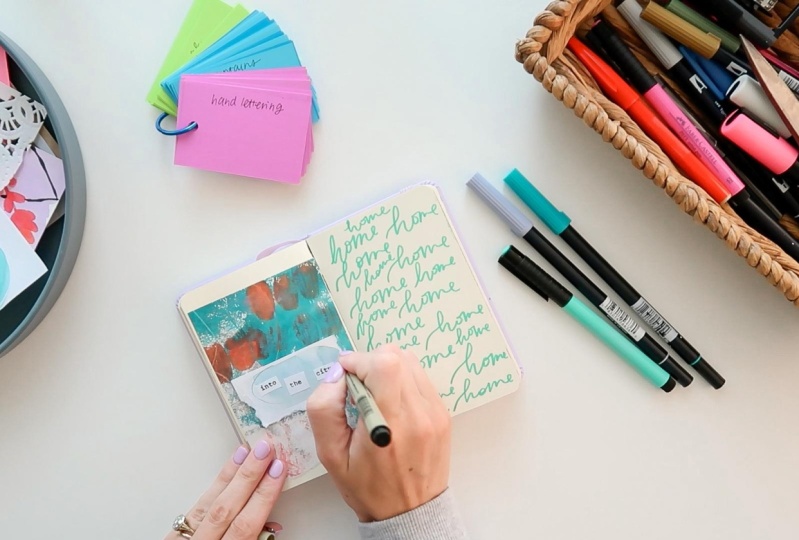 hand lettering
home
home home
home
home home
home home
home home
home home
home home
home home
home
home
into the